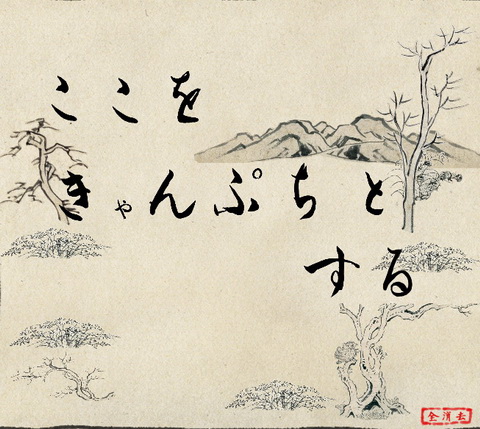 ここを
きゃんぷちと
する
全消去